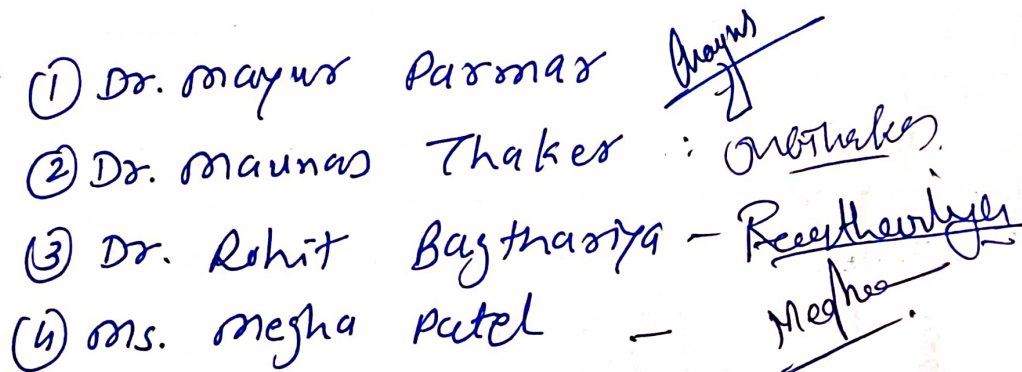 ① Dr. Mayur Parmar
② Dr. Maunas Thaker :
③ Dr. Rohit Bagthariya -
④ Ms. Megha Patel - Megha